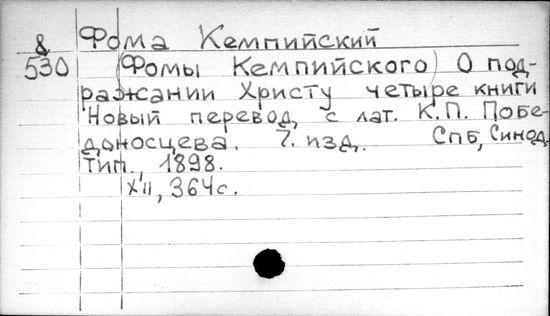 & Фома Кемпийский
530 (Фомы Кемпийского) О под-
ражании Христу четыре книги
Новый перевод, с лат. К.П. Побе-
доносцева. 7. изд. Спб, Синод.
тип., 1898.
XII, 364 с.